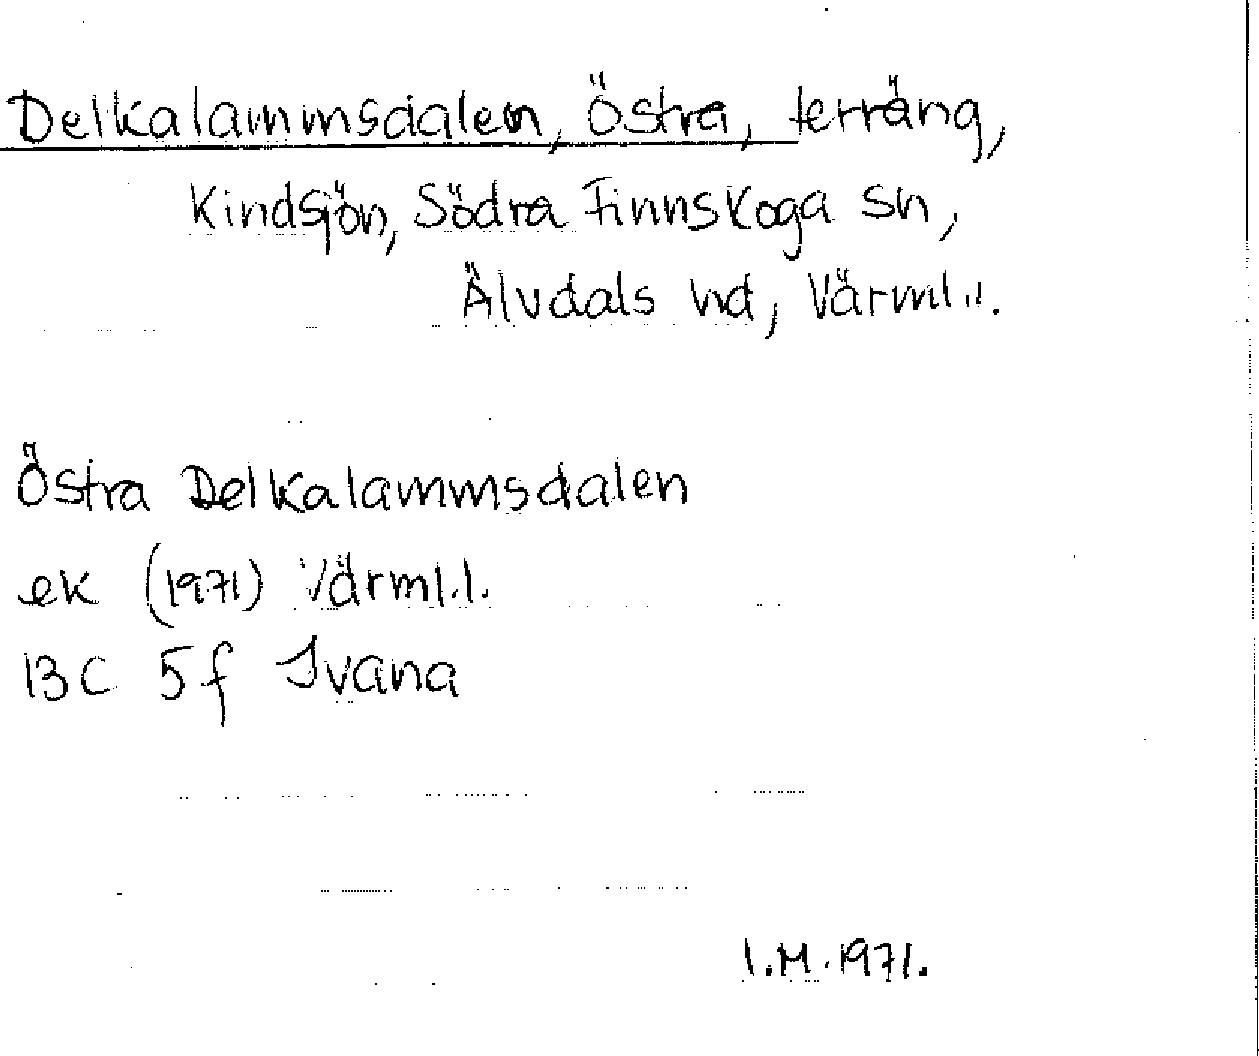 Delkalammsdalen, Östra, terräng,
Kindsjön, Södra Finnskoga sn,
Älvdals hd, Värml.l.
Östra Delkalammsdalen
ek (1971) Värml.l.
13C 5f Ivana
I.M. 1971.